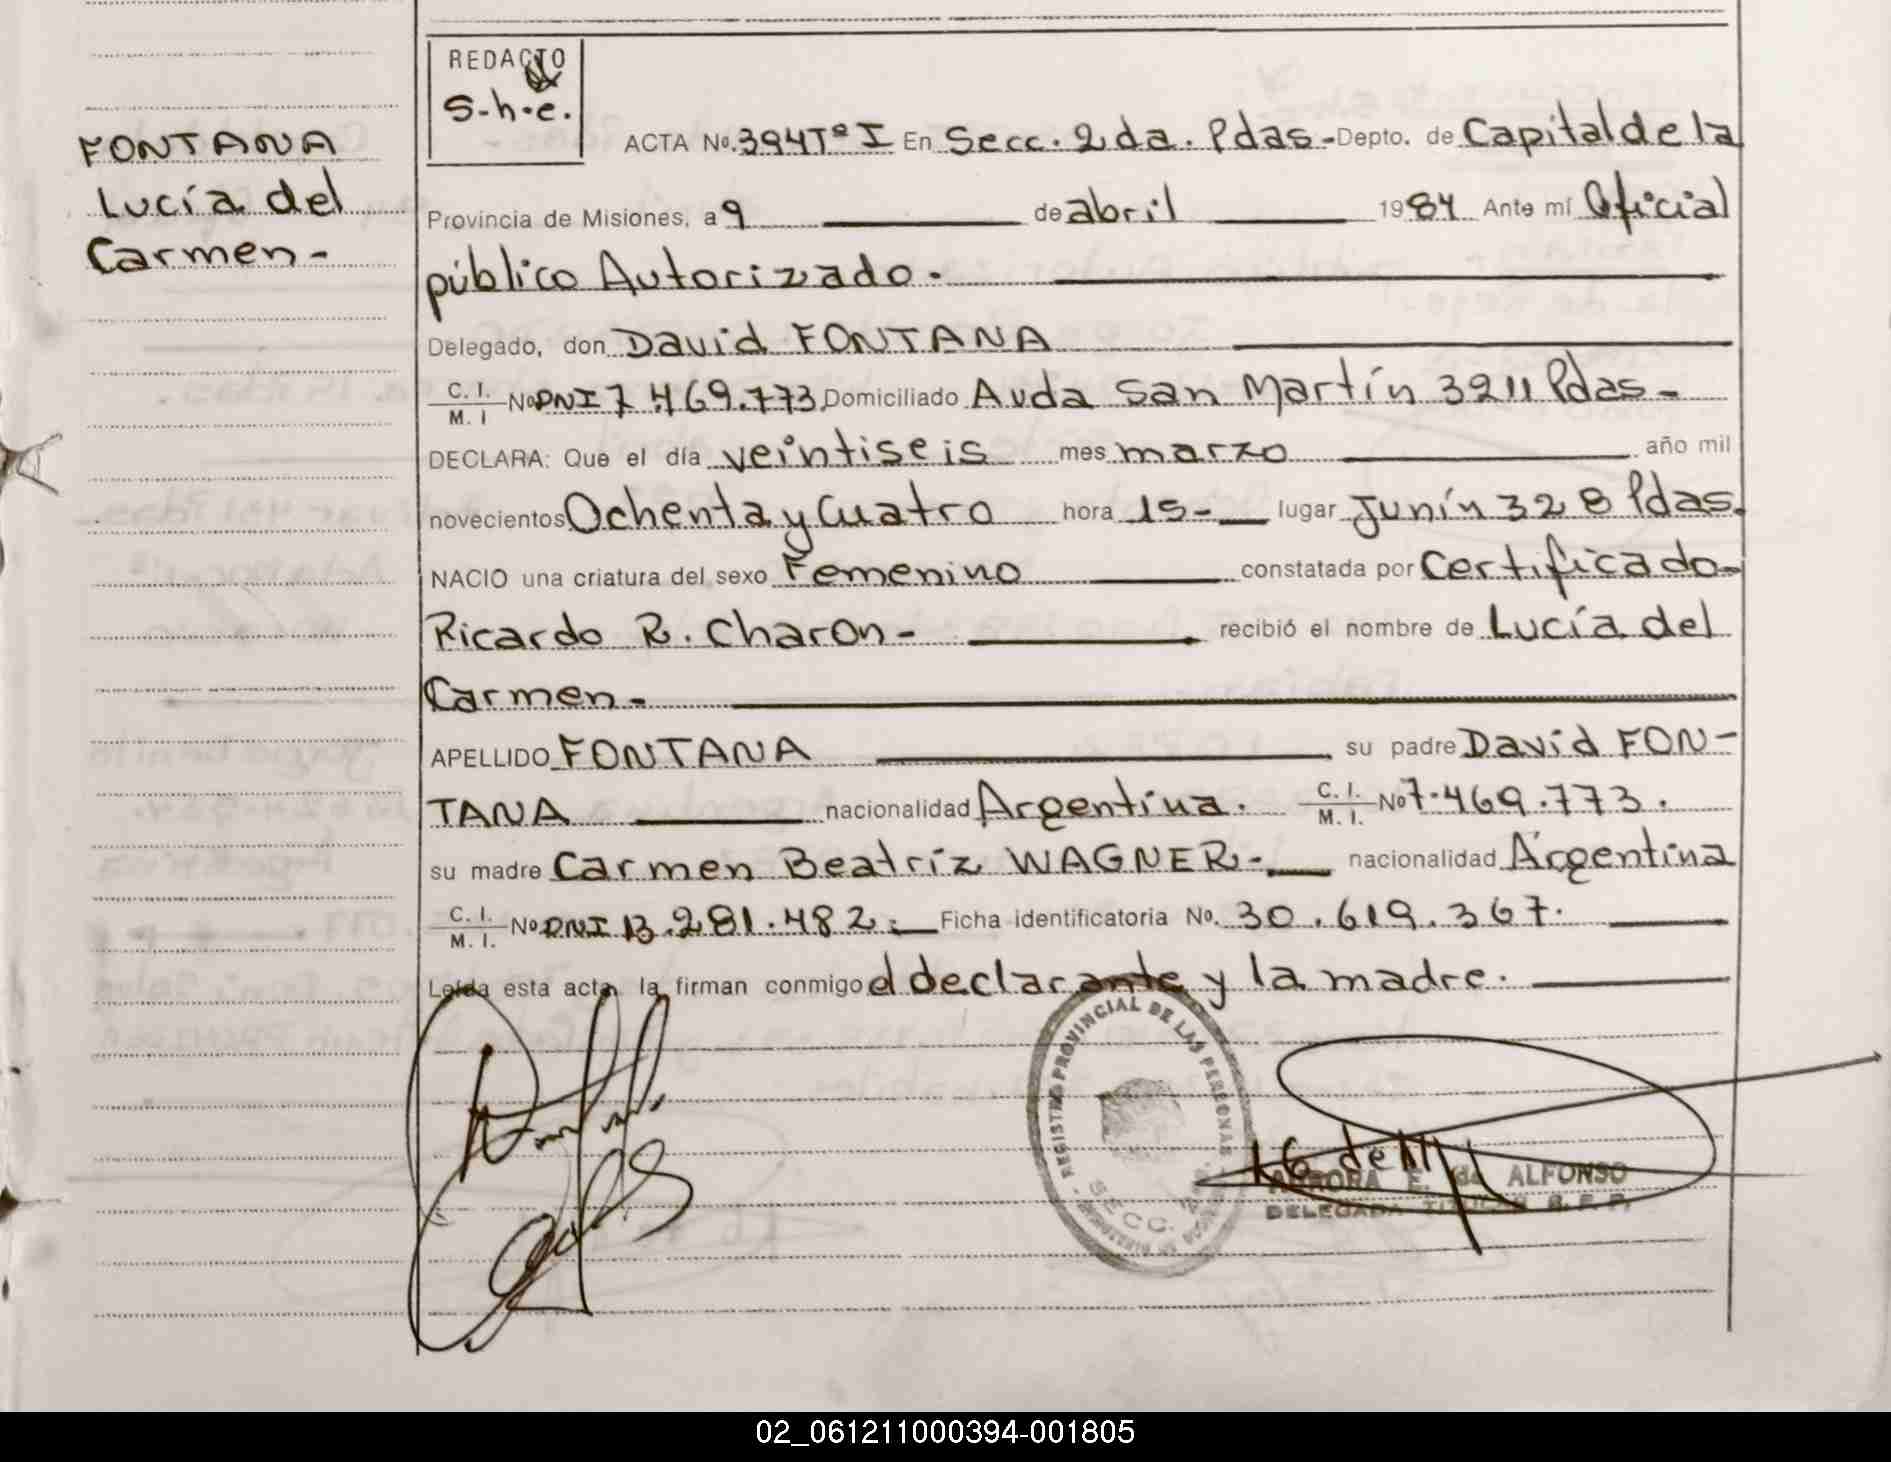 REDACTO
S-h-e.
FONTANA
Lucía del
Carmen-
ACTA No. 394 Tº I En Secc. 2da. Pdas- Depto. de Capital de la
Provincia de Misiones, a 9 de abril 1984 Ante mí Oficial
público Autorizado-
Delegado, don David FONTANA
C. I. M. I No DNI 7.469.773 Domiciliado Avda San Martín 3211 Pdas-
DECLARA: Que el día veintiseis mes marzo año mil
novecientos Ochenta y Cuatro hora 15- lugar Junín 328 Pdas.
NACIO una criatura del sexo Femenino constatada por Certificado-
Ricardo R. Charon- recibió el nombre de Lucía del
Carmen-
APELLIDO FONTANA su padre David FON-
TANA nacionalidad Argentina. C. I. M. I. No 7.469.773.
su madre Carmen Beatriz WAGNER- nacionalidad Argentina
C. I. M. I. No DNI 13.281.482. Ficha identificatoria No. 30.619.367.
Leída esta acta, la firman conmigo el declarante y la madre.
REGISTRO PROVINCIAL DE LAS PERSONAS
SECC. 2da.
AURORA E. de ALFONSO
DELEGADA TITULAR R. P. P.
02_061211000394-001805